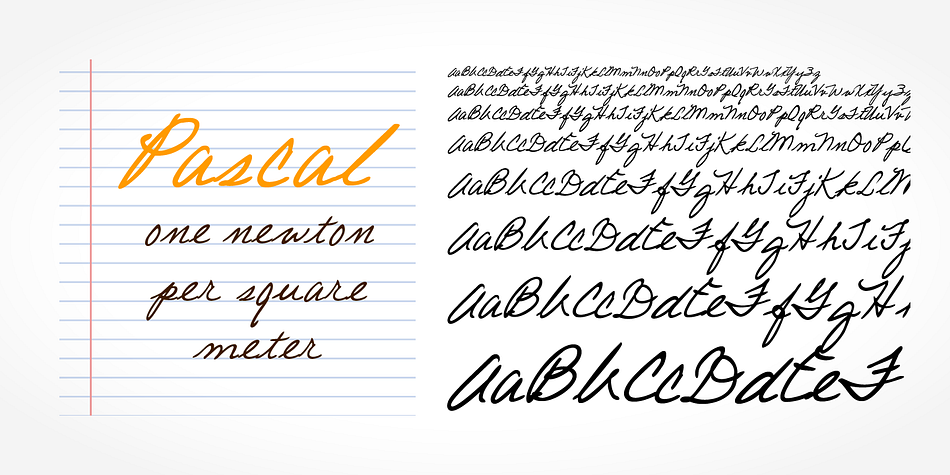 Pascal
one newton
per square
meter
AaBbCcDdEeFfGgHhIiJjKkLlMmNnOoPpQqRrSsTtUuVvWwXxYyZz
AaBbCcDdEeFfGgHhIiJjKkLlMmNnOoPpQqRrSsTtUuVvWwXxYyZz
AaBbCcDdEeFfGgHhIiJjKkLlMmNnOoPpQqRrSsTtUuVv
AaBbCcDdEeFfGgHhIiJjKkLlMmNnOoPp
AaBbCcDdEeFfGgHhIiJjKkLlM
AaBbCcDdEeFfGgHhIiJj
AaBbCcDdEeFfGgH
AaBbCcDdEeF